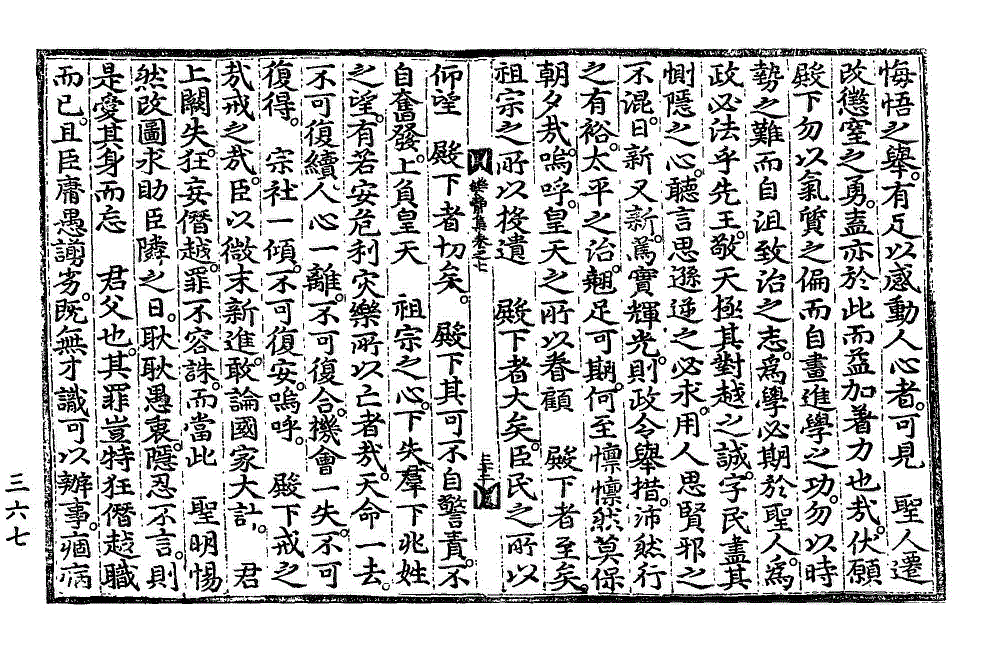 悔悟之擧。有足以感動人心者。可見　聖人遷
改懲窒之勇。盍亦於此而益加著力也哉。伏願
殿下勿以氣質之偏而自畫進學之功。勿以時
勢之難而自沮致治之志。爲學必期於聖人。爲
政必法乎先王。敬天極其對越之誠。字民盡其
惻隱之心。聽言思遜逆之必求。用人思賢邪之
不混。日新又新。篤實輝光。則政令擧措。沛然行
之有裕。太平之治。翹足可期。何至懍懍然莫保
朝夕哉。嗚呼。皇天之所以眷顧　殿下者至矣。
祖宗之所以投遺　殿下者大矣。臣民之所以
仰望　殿下者切矣。　殿下其可不自警責。不
自奮發。上負皇天　祖宗之心。下失羣下兆姓
之望。有若安危利灾樂所以亡者哉。天命一去。
不可復續。人心一離。不可復合。機會一失。不可
復得。　宗社一傾。不可復安。嗚呼。　殿下戒之
哉戒之哉。臣以微末新進。敢論國家大計。　君
上闕失。狂妄僭越。罪不容誅。而當此　聖明惕
然改圖求助臣隣之日。耿耿愚衷。隱忍不言。則
是愛其身而忘　君父也。其罪豈特狂僭越職
而已。且臣庸愚謭劣。旣無才識可以辦事。痼病
三六七